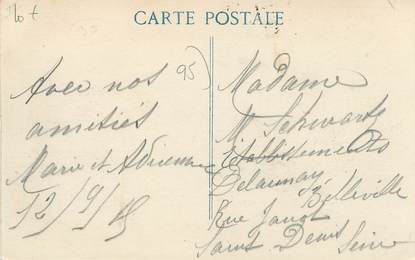 CARTE POSTALE
Avec nos
amitiés
Marie et Adrienne
12/9/15
95)
Madame
M Schwartz
Etablissements
Delaunay Belleville
Rue
Saint Denis
Seine